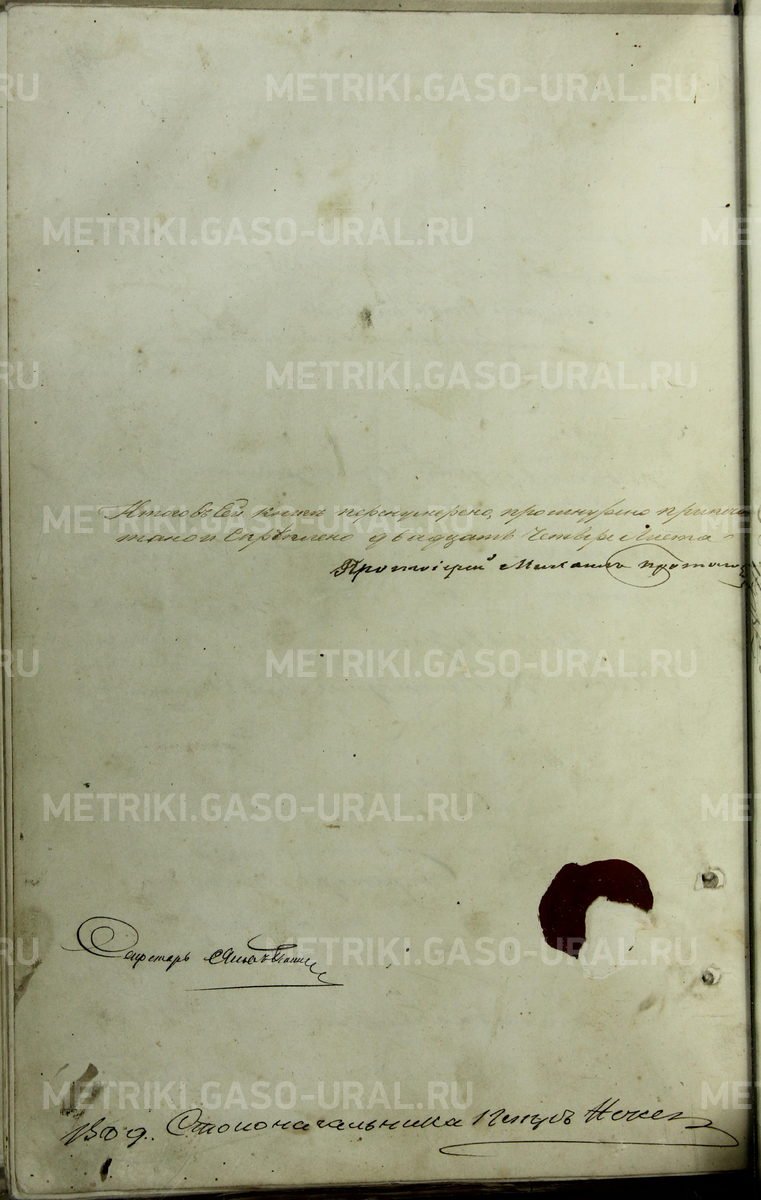 METRIKI.GASO-URAL.RU
METRIKI.GASO-URAL.RU
METRIKI.GASO-URAL.RU
Итого въ сей книгѣ перенумерено, прошнурено припеча
тано и Скрѣплено двадцать Четыре Листа
METRIKI.GASO-URAL.RU
Протоіерей Михаилъ
METRIKI.GASO-URAL.RU
METRIKI.GASO-URAL.RU
Секретарь
METRIKI.GASO-URAL.RU
METRIKI.GASO-URAL.RU
Вд д. Столоначальника Петръ